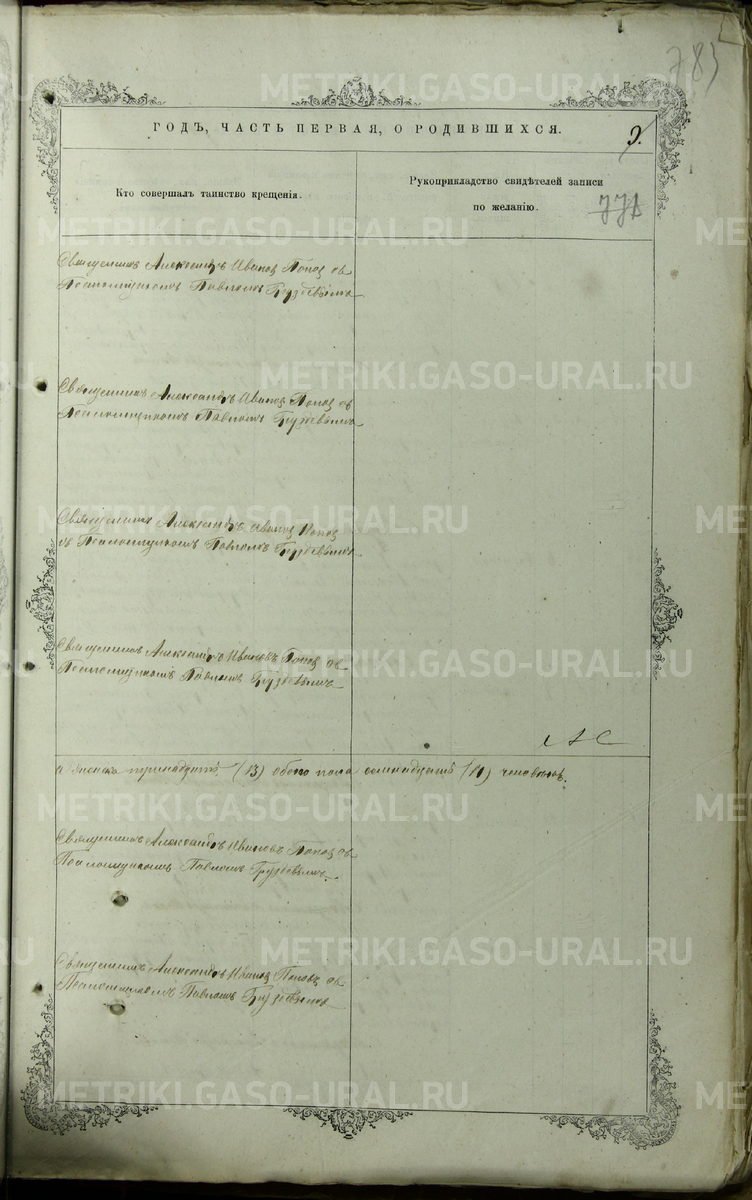 785
ГОДЪ, ЧАСТЬ ПЕРВАЯ, О РОДИВШИХСЯ.
9.
Кто совершалъ таинство крещенія.
Рукоприкладство свидѣтелей записи
по желанію.
771
Священникъ Александръ Ивановъ Поповъ съ
Псаломщикомъ Павломъ Груздевымъ
Священникъ Александръ Ивановъ Поповъ съ
Псаломщикомъ Павломъ Груздевымъ
Священникъ Александръ Ивановъ Поповъ
съ Псаломщикомъ Павломъ Груздевымъ
Священникъ Александръ Ивановъ Поповъ съ
Псаломщикомъ Павломъ Груздевымъ
женска тринадцать (13) обоего пола семнадцать человѣкъ.
Священникъ Александръ Ивановъ Поповъ съ
Псаломщикомъ Павломъ Груздевымъ.
Священникъ Александръ Ивановъ Поповъ съ
Псаломщикомъ Павломъ Груздевымъ
METRIKI.GASO-URAL.RU